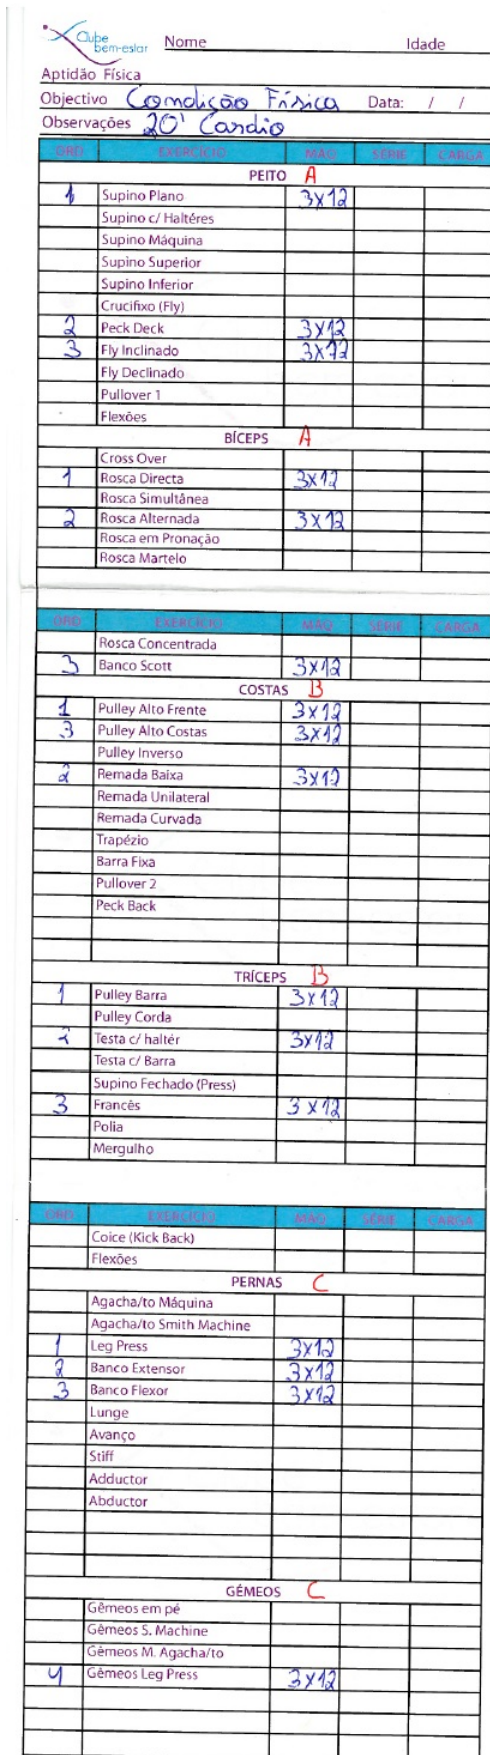 Clube
bem-estar
Nome Idade
Aptidão Física
Objectivo Condição Física Data: / /
Observações 20' Cardio
ORD EXERCÍCIO MÁQ SÉRIE CARGA
PEITO A
1 Supino Plano 3x12
Supino c/ Haltéres
Supino Máquina
Supino Superior
Supino Inferior
Crucifixo (Fly)
2 Peck Deck 3x12
3 Fly Inclinado 3x12
Fly Declinado
Pullover 1
Flexões
BÍCEPS A
Cross Over
1 Rosca Directa 3x12
Rosca Simultânea
2 Rosca Alternada 3x12
Rosca em Pronação
Rosca Martelo
ORD EXERCÍCIO MÁQ SÉRIE CARGA
Rosca Concentrada
3 Banco Scott 3x12
COSTAS B
1 Pulley Alto Frente 3x12
3 Pulley Alto Costas 3x12
Pulley Inverso
2 Remada Baixa 3x12
Remada Unilateral
Remada Curvada
Trapézio
Barra Fixa
Pullover 2
Peck Back
TRÍCEPS B
1 Pulley Barra 3x12
Pulley Corda
2 Testa c/ haltér 3x12
Testa c/ Barra
Supino Fechado (Press)
3 Francês 3x12
Polia
Mergulho
ORD EXERCÍCIO MÁQ SÉRIE CARGA
Coice (Kick Back)
Flexões
PERNAS C
Agacha/to Máquina
Agacha/to Smith Machine
1 Leg Press 3x12
2 Banco Extensor 3x12
3 Banco Flexor 3x12
Lunge
Avanço
Stiff
Adductor
Abductor
GÉMEOS C
Gêmeos em pé
Gêmeos S. Machine
Gêmeos M. Agacha/to
4 Gêmeos Leg Press 3x12